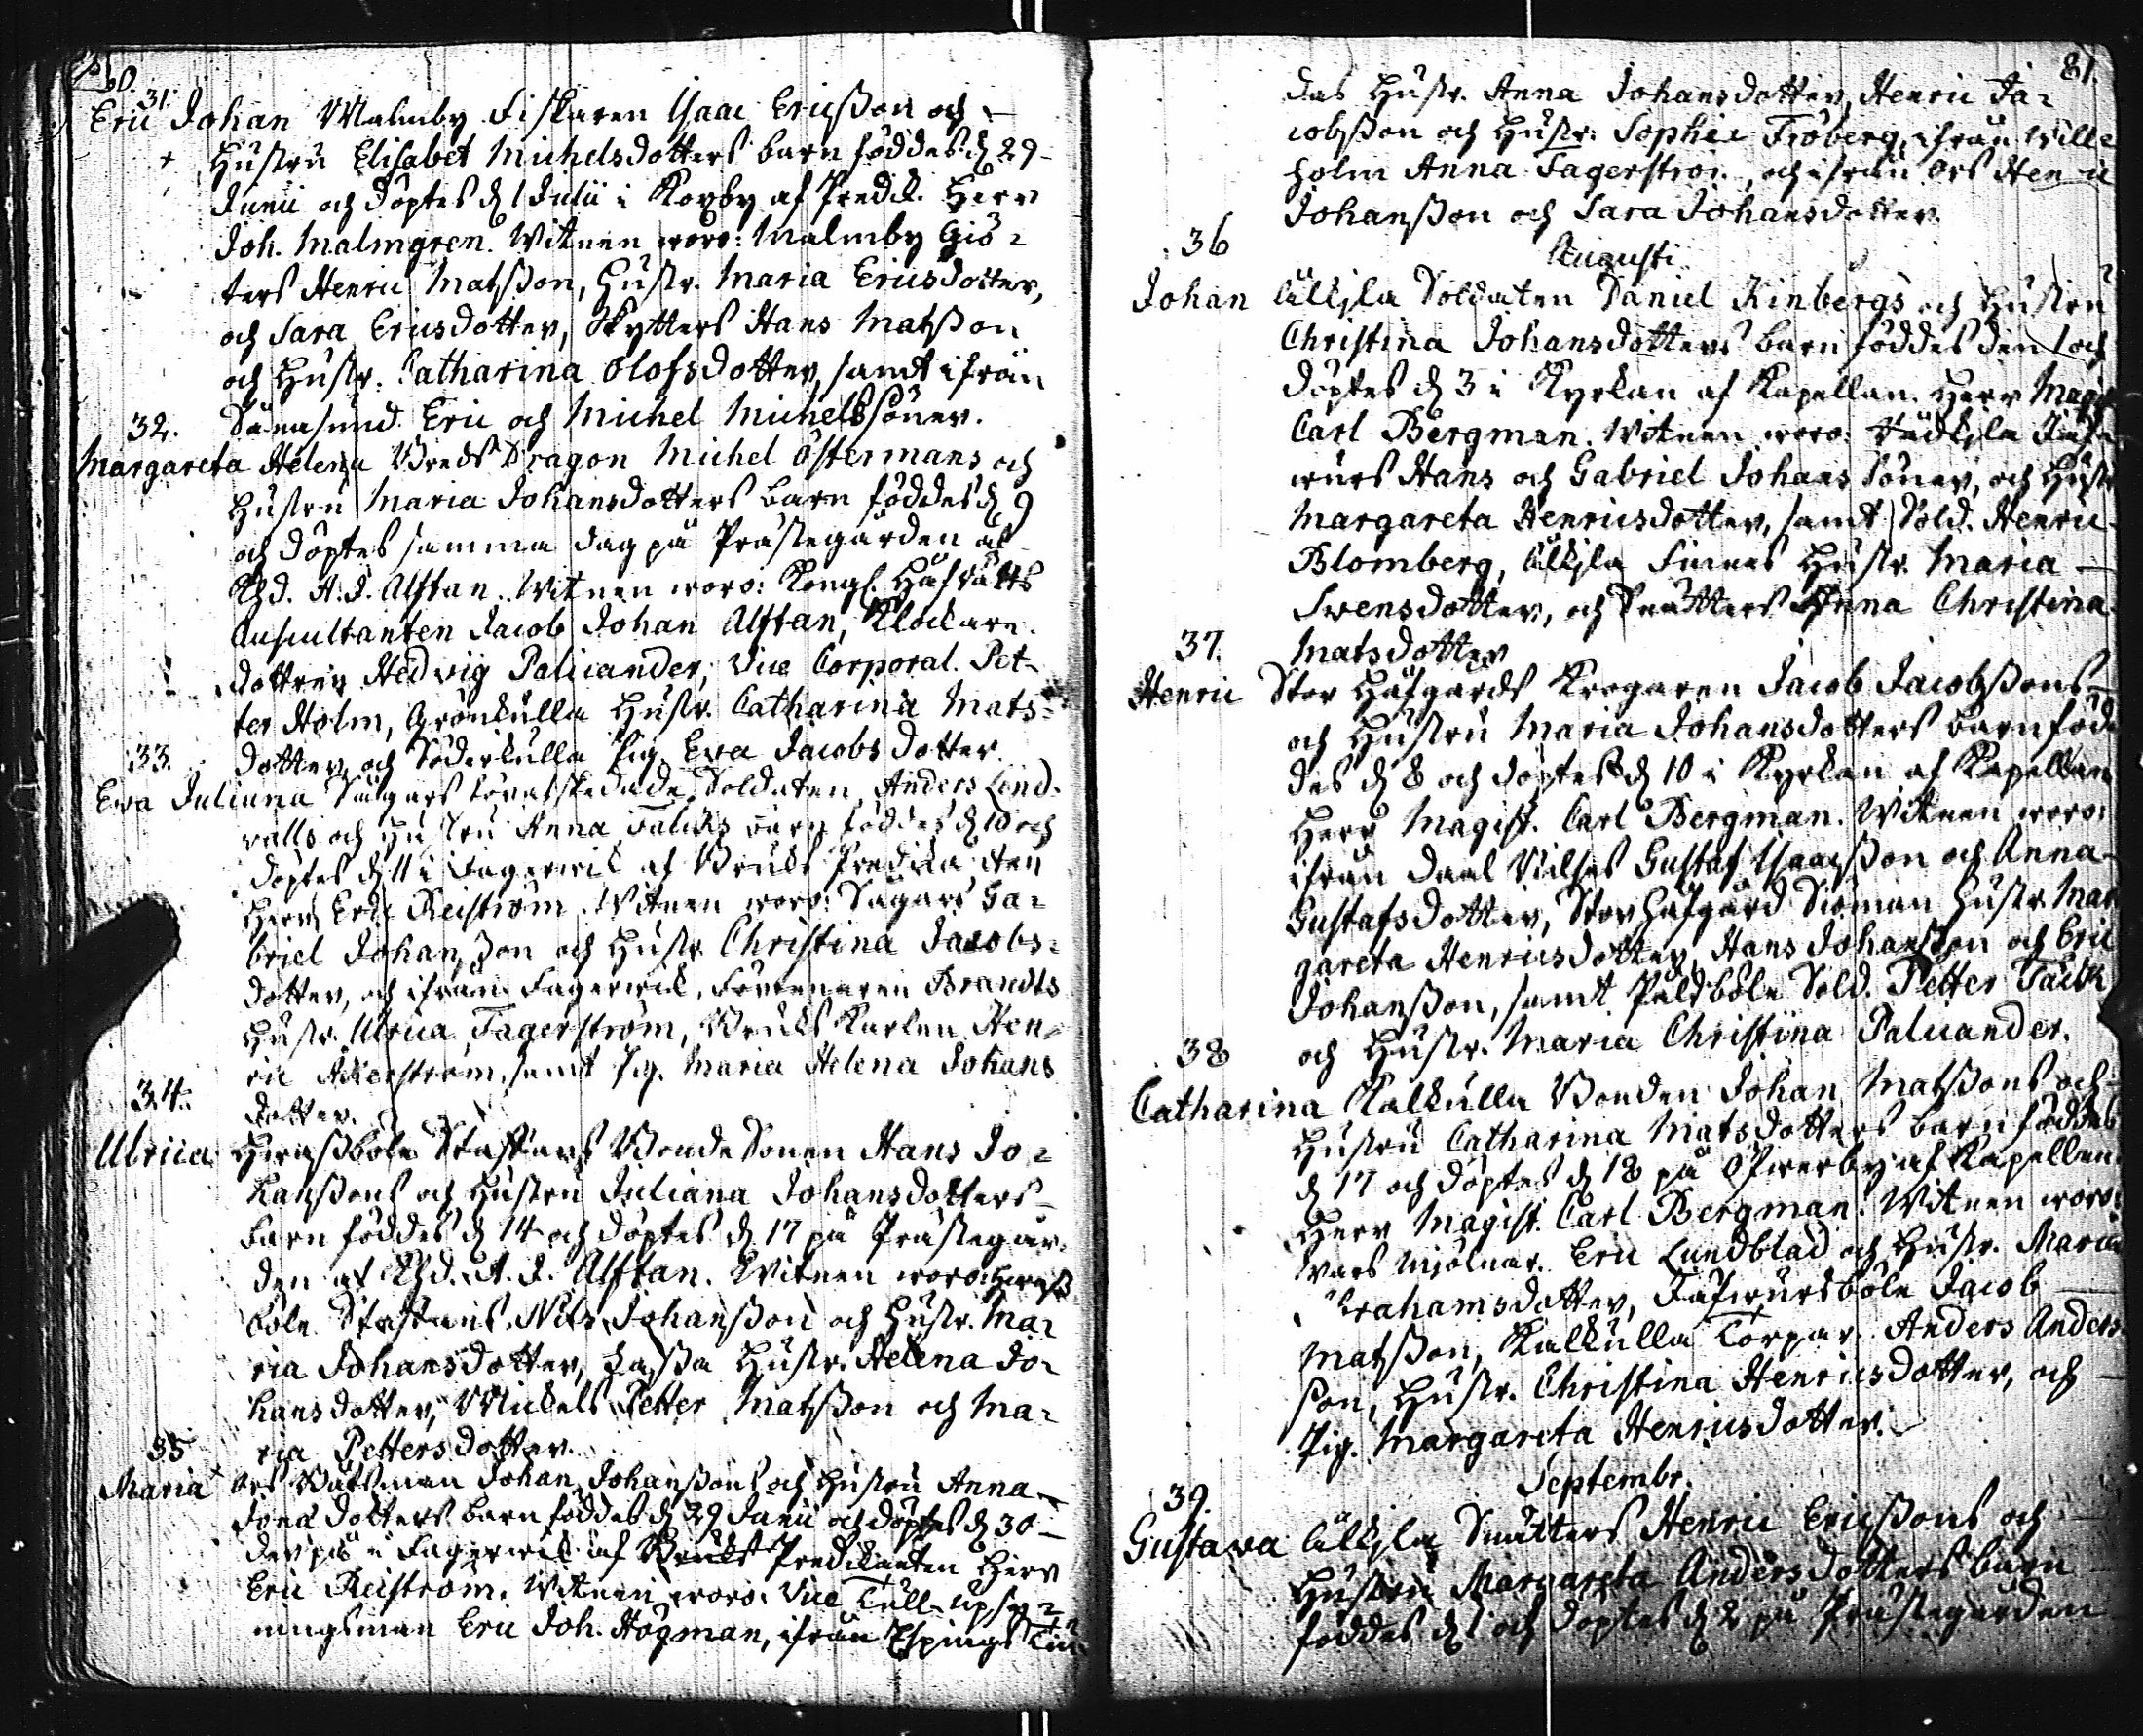 31.
Eric Johan Malmby Fiskaren Isaac Ericßon och
+ Hustru Elisabet Michelsdotters barn föddes d. 29
Junii och döptes d. 1 Julii i Kopby af Predik. Herr
Joh. Malmgren. Witnen woro: Malmby Giö-
ters Henric Matsßon, Hustr. Maria Ericsdotter,
och Sara Ericsdotter, Skytters Hans Matsßon
och Hustr. Catharina Olofsdotter, samt ifrån
Eric och Michel Michelssöner.
32.
Margareta Helena Breds Dragon Michel Östermans och
Hustru Maria Johansdotters barn föddes d. 9
och döptes samma dag på Prästegården af
Khd. A. J. Alftan. Witnen woro: Kongl. Håfrätts
Auscultanten Jacob Johan Alftan, Klockare
dottren Hedvig Palicander, Vice Corporal. Pet-
ter Holm, Grönkulla Hustr. Catharina Mats-
dotter, och Söderkulla Pig. Eva Jacobs dotter.
33.
Eva Juliana Sågars Soldaten Anders Lind-
valls och Hustru Anna Falcks barn föddes d. 10 och
döptes d. 11 i Fagerwik af Bruks Predika ten
Herr Eric Reiström. Witnen woro: Sågars Ga-
briel Johansßon och Hustr. Christina Jacobs-
dotter, och ifrån Fagerwik, Brandts
Hustr. Ulrica Fagerström, Bruks Karlen Hen-
ric Åkerström, samt Pig. Maria Helena Johans
dotter.
34.
Ulrica Staffans Bonde Sonen Hans Jo-
hansßons och Hustru Juliana Johansdotters
barn föddes d. 14 och döptes d. 17 på Prästegår-
den af Khd. A. J. Alftan. Witnen woro:
böle Staffans Nils Johansßon och Hustr. Ma-
ria Johansdotter, Hustr. Helena Jo-
hansdotter, Mickels Petter Matsßon och Ma-
ria Pettersdotter.
35
Maria Ors Båtsman Johan Johansßons och Hustru Anna
Jona dotters barn föddes d. 29 Junii och döptes d. 30
i Fagerwik af Bruks Predikanten Herr
Eric Reiström. Witnen woro: Vice Tull upsy-
ningsman Eric Joh. Högman, ifrån Espings
81.
das Hustr. Anna Johansdotter, Henric Ja-
cobsßon och Hustr. Sophia Fröberg, ifrån Wille
holm Anna Fagerström, och ifrån Ors Henric
Johansßon och Sara Johansdotter.
Augusti
36
Johan Älkila Soldaten Daniel Kinbergs och Hustru
Christina Johansdotters barn föddes den 1 och
döptes d. 3 i Kyrkan af Kapellan. Herr Mag.
Carl Bergman. Witnen woro:
Hans och Gabriel Johans Söner, och Hustr.
Margareta Henricsdotter, samt Sold. Henric
Blomberg, Älkila Finnes Hustr. Maria
Svensdotter, och Snutters Anna Christina
Matsdotter
37.
Henric Stor Håfgårds Krogaren Jacob Jacobsßons
och Hustru Maria Johansdotters barn föd-
des d. 8 och döptes d. 10 i Kyrkan af Kapellan
Herr Magist. Carl Bergman. Witnen woro:
ifrån Daal Nilses Gustaf Isacsßon och Anna
Gustafsdotter, Stor Håfgård Siöman Hustr. Mar
gareta Henricsdotter, Hans Johansßon och Eric
Johansßon, samt Påldböle Sold. Petter Falck
och Hustr. Maria Christina Palicander.
38
Catharina Kalkulla Bonden Johan Matsßons och
Hustru Catharina Matsdotters barn föddes
d. 17 och döptes d. 18 på Öfwerby af Kapellan
Herr Magist. Carl Bergman. Witnen woro:
Mjölnar. Eric Lundblad och Hustr. Maria
Abrahamsdotter, Jacob
Matsßon, Kalkulla Torpar. Anders Anders-
ßon, Hustr. Christina Henricsdotter, och
Pig. Margareta Henricsdotter.
Septembr.
39.
Gustava Älkila Snutters Henric Ericßons och
Hustru Margareta Andersdotters barn
föddes d. 1 och döptes d. 2 på Prästegården